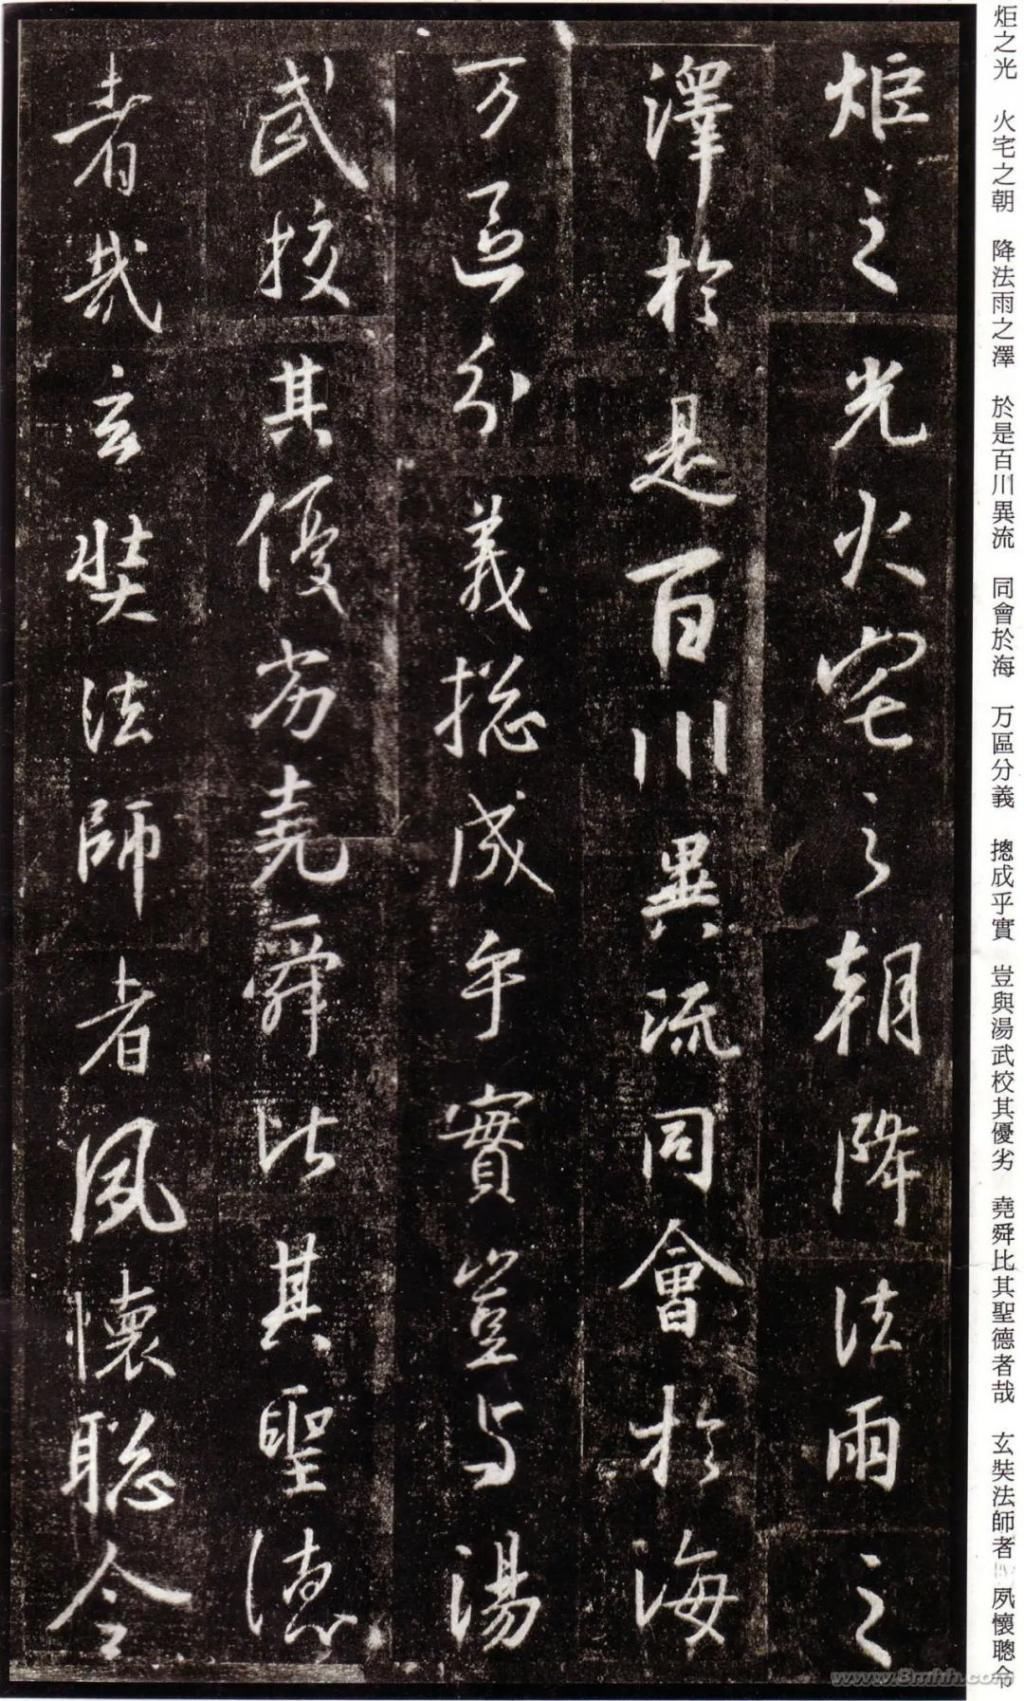 炬之光　火宅之朝　降法雨之澤　於是百川異流　同會於海　万區分義　摠成乎實　豈與湯武校其優劣　堯舜比其聖德者哉　玄奘法師者　夙懷聰令
炬之光火宅之朝降法雨之
澤於是百川異流同會於海
万區分義揔成乎實豈与湯
武挍其優劣堯舜比其聖德
者哉玄奘法師者夙懷聡令